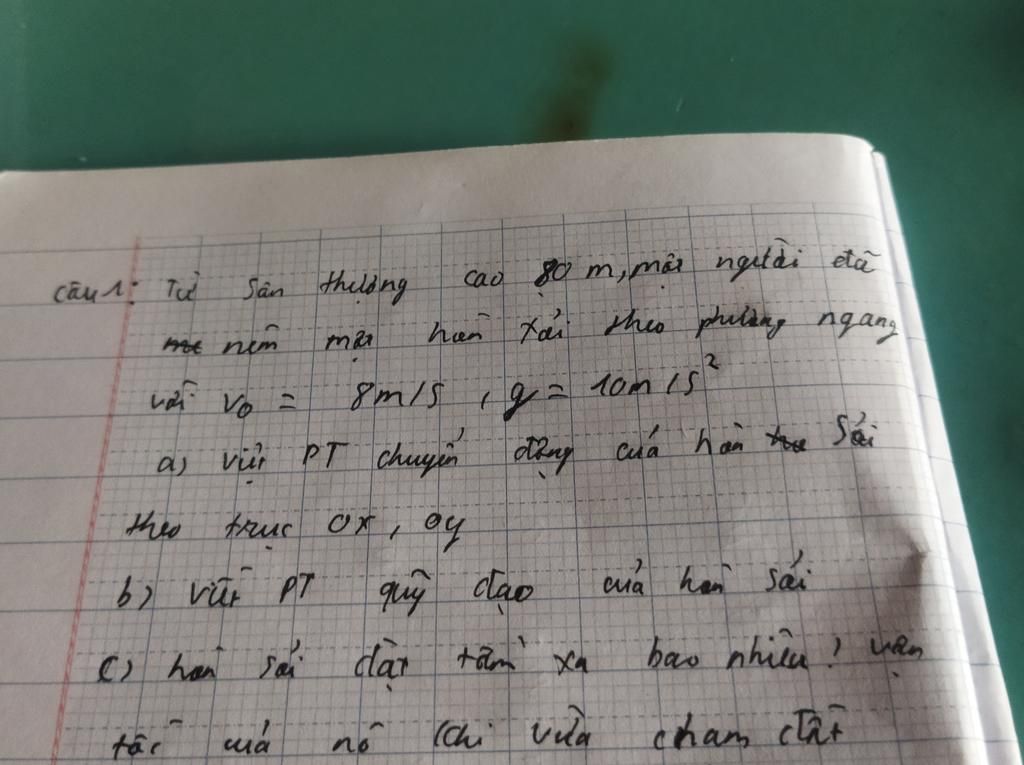 Câu 1: Từ sân thượng cao 80 m, một người đã
ném một hòn sỏi theo phương ngang
với v₀ = 8m/s, g = 10m/s²
a) viết PT chuyển động của hòn sỏi
theo trục Ox, Oy
b) viết PT quỹ đạo của hòn sỏi
c) hòn sỏi đạt tầm xa bao nhiêu? vận
tốc của nó khi vừa chạm đất